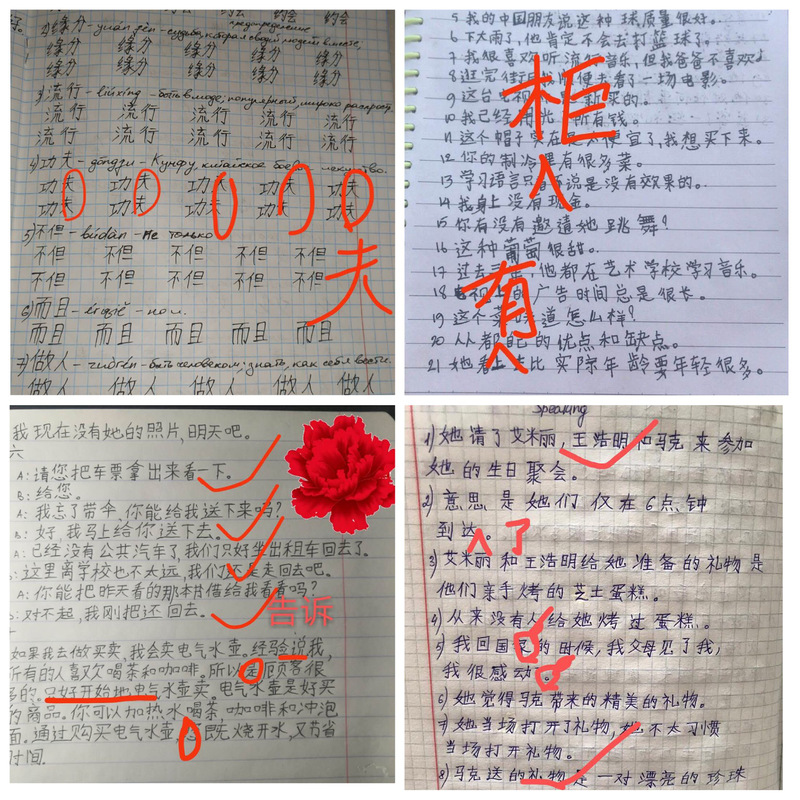 约会 约会
предупреждение
2) 缘分 - yuán fèn - судьба, которая сводит людей вместе,
缘分 缘分 缘分 缘分 缘分
缘分 缘分 缘分 缘分 缘分
3) 流行 - liúxíng - быть в моде; популярный, широко распрост.
流行 流行 流行 流行 流行
流行 流行 流行 流行 流行
4) 功夫 - gōngfu - Кунфу, китайское боев. искусство.
功夫 功夫 功夫 功夫 功夫
功夫 功夫 功夫 功夫 功夫
夫
5) 不但 - búdàn - не только
不但 不但 不但 不但 不但
不但 不但 不但 不但 不但
6) 而且 - érqiě - но и.
而且 而且 而且 而且 而且
7) 做人 - zuòrén - быть человеком; знать, как себя вести.
做人 做人 做人 做人 做人
5 我的中国朋友说这种球质量很好。
6 下大雨了,他肯定不会去打篮球了。
7 我很喜欢听流行音乐,但我爸爸不喜欢
8 逛完街后我们便去看了一场电影。
9 这台电视 新买的。
10 我已经用光 所有钱。
11 这个帽子实在是太便宜了,我想买下来。
12 你的制冷 里有很多菜。
柜
13 学习语言只看不说是没有效果的。
14 我身上没有现金。
15 你有没有邀请她跳舞?
16 这种葡萄很甜。
17 过去 ,他都在艺术学校学习音乐。
18 电视上的广告时间总是很长。
19 这个菜味道怎么样?
20 人人都自己的优点和缺点。
有
21 她看上去比实际年龄要年轻很多。
我现在没有她的照片,明天吧。
六
A: 请您把车票拿出来看一下。
B: 给您。
A: 我忘了带伞,你能给我送下来吗?
B: 好,我马上给你送下去。
A: 已经没有公共汽车了,我们只好坐出租车回去了。
B: 这里离学校也不太远,我们还是走回去吧。
A: 你能把昨天看的那本书借给我看看吗?
B: 对不起,我刚把还回去。
告诉
如果我去做买卖,我会卖电气水壶。经验说我,
所有的人喜欢喝茶和咖啡。所以 顾客很
多的。只好开始地电气水壶买 电气水壶是好买
的商品。你可以加热水喝茶,咖啡和冲泡
面。通过购买电气水壶, 既烧开水,又节省
时间.
Speaking
1) 她请了艾米丽,王浩明和马克来参加
她的生日聚会。
2) 意思是她们仅在6点钟
到达。
了
3) 艾米丽和王浩明给她准备的礼物是
他们亲手烤的芝士蛋糕。
4) 从来没有人给她烤过蛋糕。
5) 我回国 的时候,我父母见了我,
我很感动。
6) 她觉得马克带来的精美的礼物。
7) 她当场打开了礼物,她不太习惯
当场打开礼物。
8) 马克送的礼物是一对漂亮的珍珠